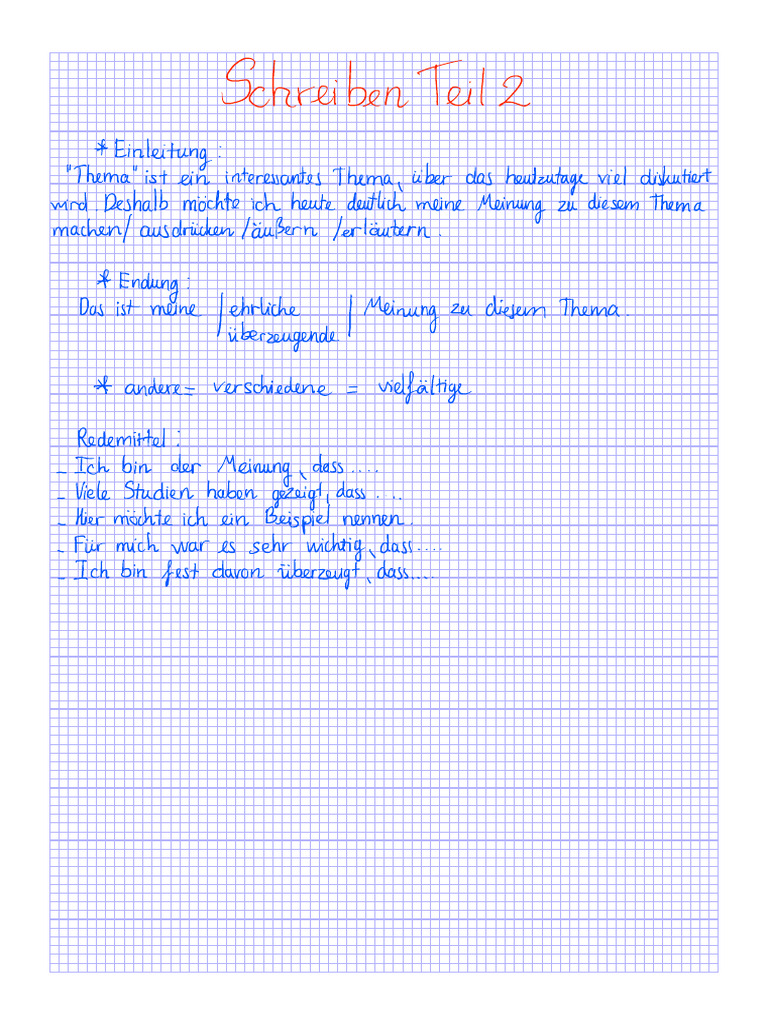 Schreiben Teil 2
* Einleitung :
"Thema" ist ein interessantes Thema, über das heutzutage viel diskutiert
wird Deshalb möchte ich heute deutlich meine Meinung zu diesem Thema
machen/ ausdrücken /äußern /erläutern.
* Endung :
Das ist meine | ehrliche | Meinung zu diesem Thema.
überzeugende
* andere = verschiedene = vielfältige
Redemittel :
- Ich bin der Meinung, dass....
- Viele Studien haben gezeigt, dass....
- Hier möchte ich ein Beispiel nennen.
- Für mich war es sehr wichtig, dass....
- Ich bin fest davon überzeugt, dass....